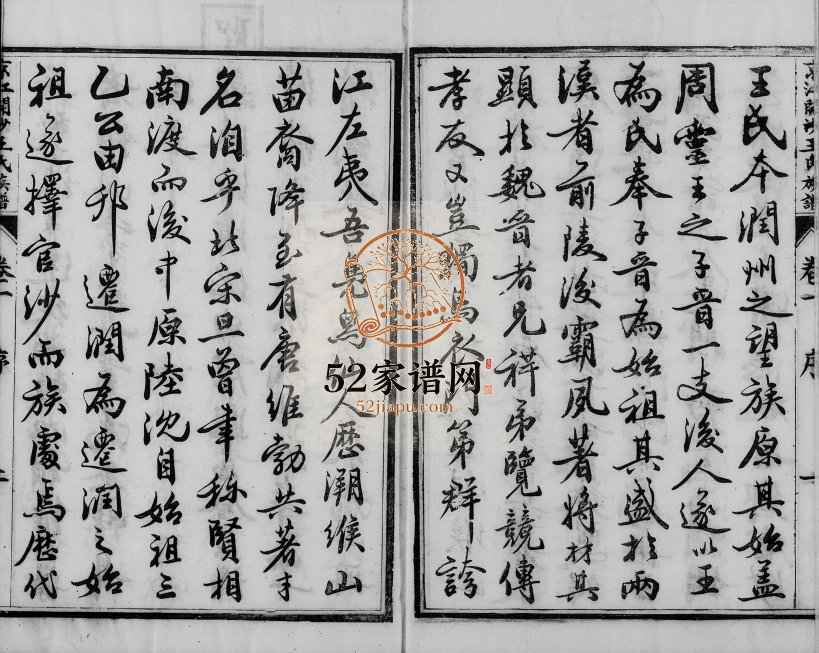 王氏本潤州之望族原其始蓋
周靈王之子晉一支後人遂以王
為氏奉子晉為始祖其盛於兩
漢者前陵後霸夙著將材其
顯於魏晉者兄祥弟覽競傳
孝友又豈獨烏衣門第群誇
江左夷吾先烏人歷溯緱山
苗裔降至有唐維勃共著才
名洎乎北宋旦曾聿稱賢相
南渡而後中原陸沈自始祖三
乙公由邗遷潤為遷潤之始
祖遂擇官沙而族處焉歷代
卷一
序
一
王氏族譜
卷二
序
52家谱网
52jiapu.com